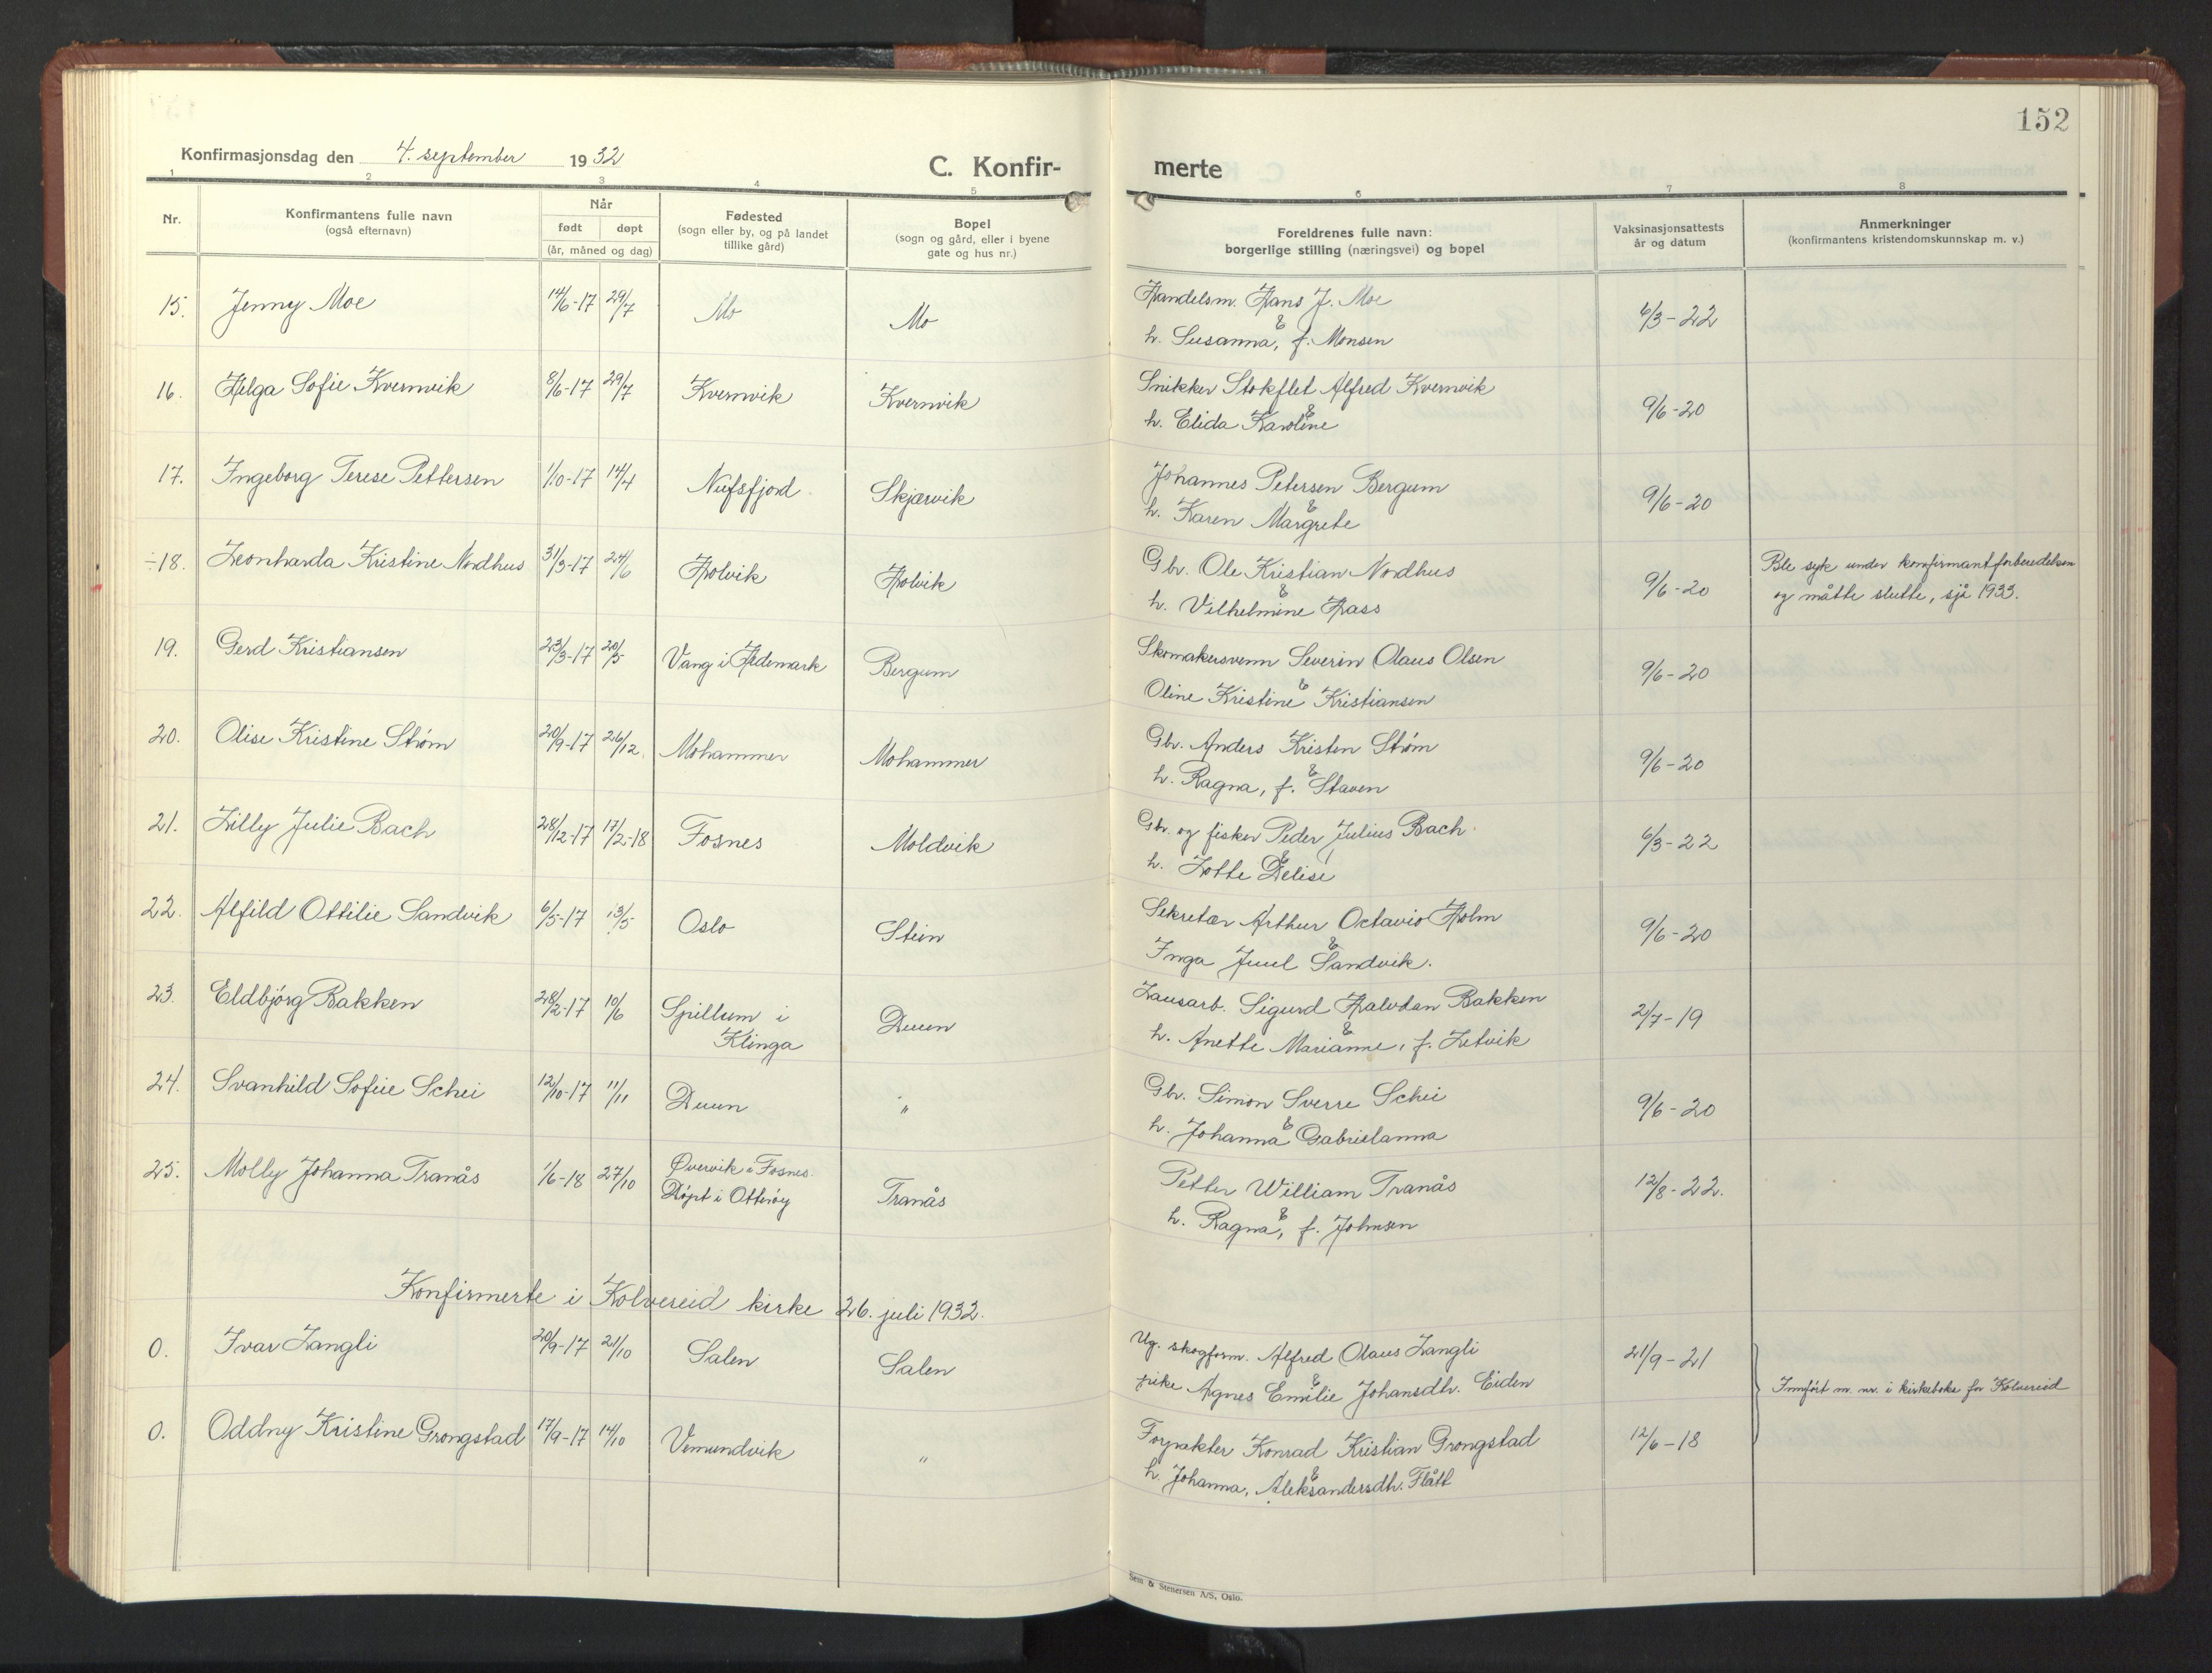 152
Konfirmasjonsdag den 4. september 1932
C. Konfir-
merte
1 2 3 4 5 6 7 8
Nr.
Konfirmantens fulle navn
(også efternavn)
Når
født døpt
(år, måned og dag)
Fødested
(sogn eller by, og på landet
tillike gård)
Bopel
(sogn og gård, eller i byene
gate og hus nr.)
Foreldrenes fulle navn:
borgerlige stilling (næringsvei) og bopel
Vaksinasjonsattests
år og datum
Anmerkninger
(konfirmantens kristendomskunnskap m. v.)
15. Jenny Moe 14/6-17 29/7 Mo Mo Handelsm. Hans J. Moe 6/3-22
& h. Susanna, f. Monsen
16. Helga Sofie Kvernvik 8/6-17 29/7 Kvernvik Kvernvik Snikker Stokflet Alfred Kvernvik 9/6-20
& h. Elida Karoline
17. Ingeborg Terese Pettersen 1/10-17 14/4 Nufsfjord Skjærvik Johannes Petersen Bergum 9/6-20
& h. Karen Margrete
÷18. Leonharda Kristine Nordhus 31/3-17 24/6 Holvik Holvik Gbr. Ole Kristian Nordhus 9/6-20 Ble syk under konfirmantforberedelsen
& h. Vilhelmine Hass og måtte slutte, sjå 1933.
19. Gerd Kristiansen 23/3-17 20/5 Vang i Hedemark Bergum Skomakersvenn Severin Olaus Olsen 9/6-20
& Oline Kristine Kristiansen
20. Olise Kristine Strøm 20/9-17 26/12. Mohammer Mohammer Gbr. Anders Kristen Strøm 9/6-20
& h. Ragna, f. Staven
21. Lilly Julie Bach 28/12-17 17/2-18 Fosnes Moldvik Gbr. og fisker Peder Julius Bach 6/3-22
& h. Lotte Delise
22. Alfild Ottilie Sandvik 6/5-17 13/5 Oslo Stein Sekretær Arthur Octavio Holm 9/6-20
& Inga Juul Sandvik.
23. Eldbjørg Bakken 28/2-17 10/6 Spillum i Klinga Duun Lausarb. Sigurd Halvdan Bakken 2/7-19
& h. Anette Marianne, f. Letvik
24. Svanhild Sofie Schei 12/10-17 11/11 Duun " Gbr. Simon Sverre Schei 9/6-20
& h. Johanna Gabrielanna
25. Molly Johanna Tranås 1/6-18 27/10 Øvervik i Fosnes. Døpt i Otterøy Tranås Petter William Tranås 12/8-22.
& h. Ragna, f. Johnsen
Konfirmerte i Kolvereid kirke 26. juli 1932.
0. Ivar Langli 20/9-17 21/10 Salen Salen Ug. skogform. Alfred Olaus Langli 21/9-21
& pike Agnes Emilie Johansdtr. Eiden Innført m. nr. i kirkeboka for Kolvereid
0. Oddny Kristine Grongstad 17/9-17 14/10 Vemundvik " Forpakter Konrad Kristian Grongstad 12/6-18
& h. Johanna, Aleksandersdtr. Flått
Sem & Stenersen A/S, Oslo.